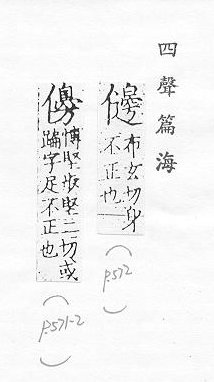 四聲篇海
布玄切身
不正也
(p.572)
博堅 堅二切或
蹁字足不正也
(p.571-2)